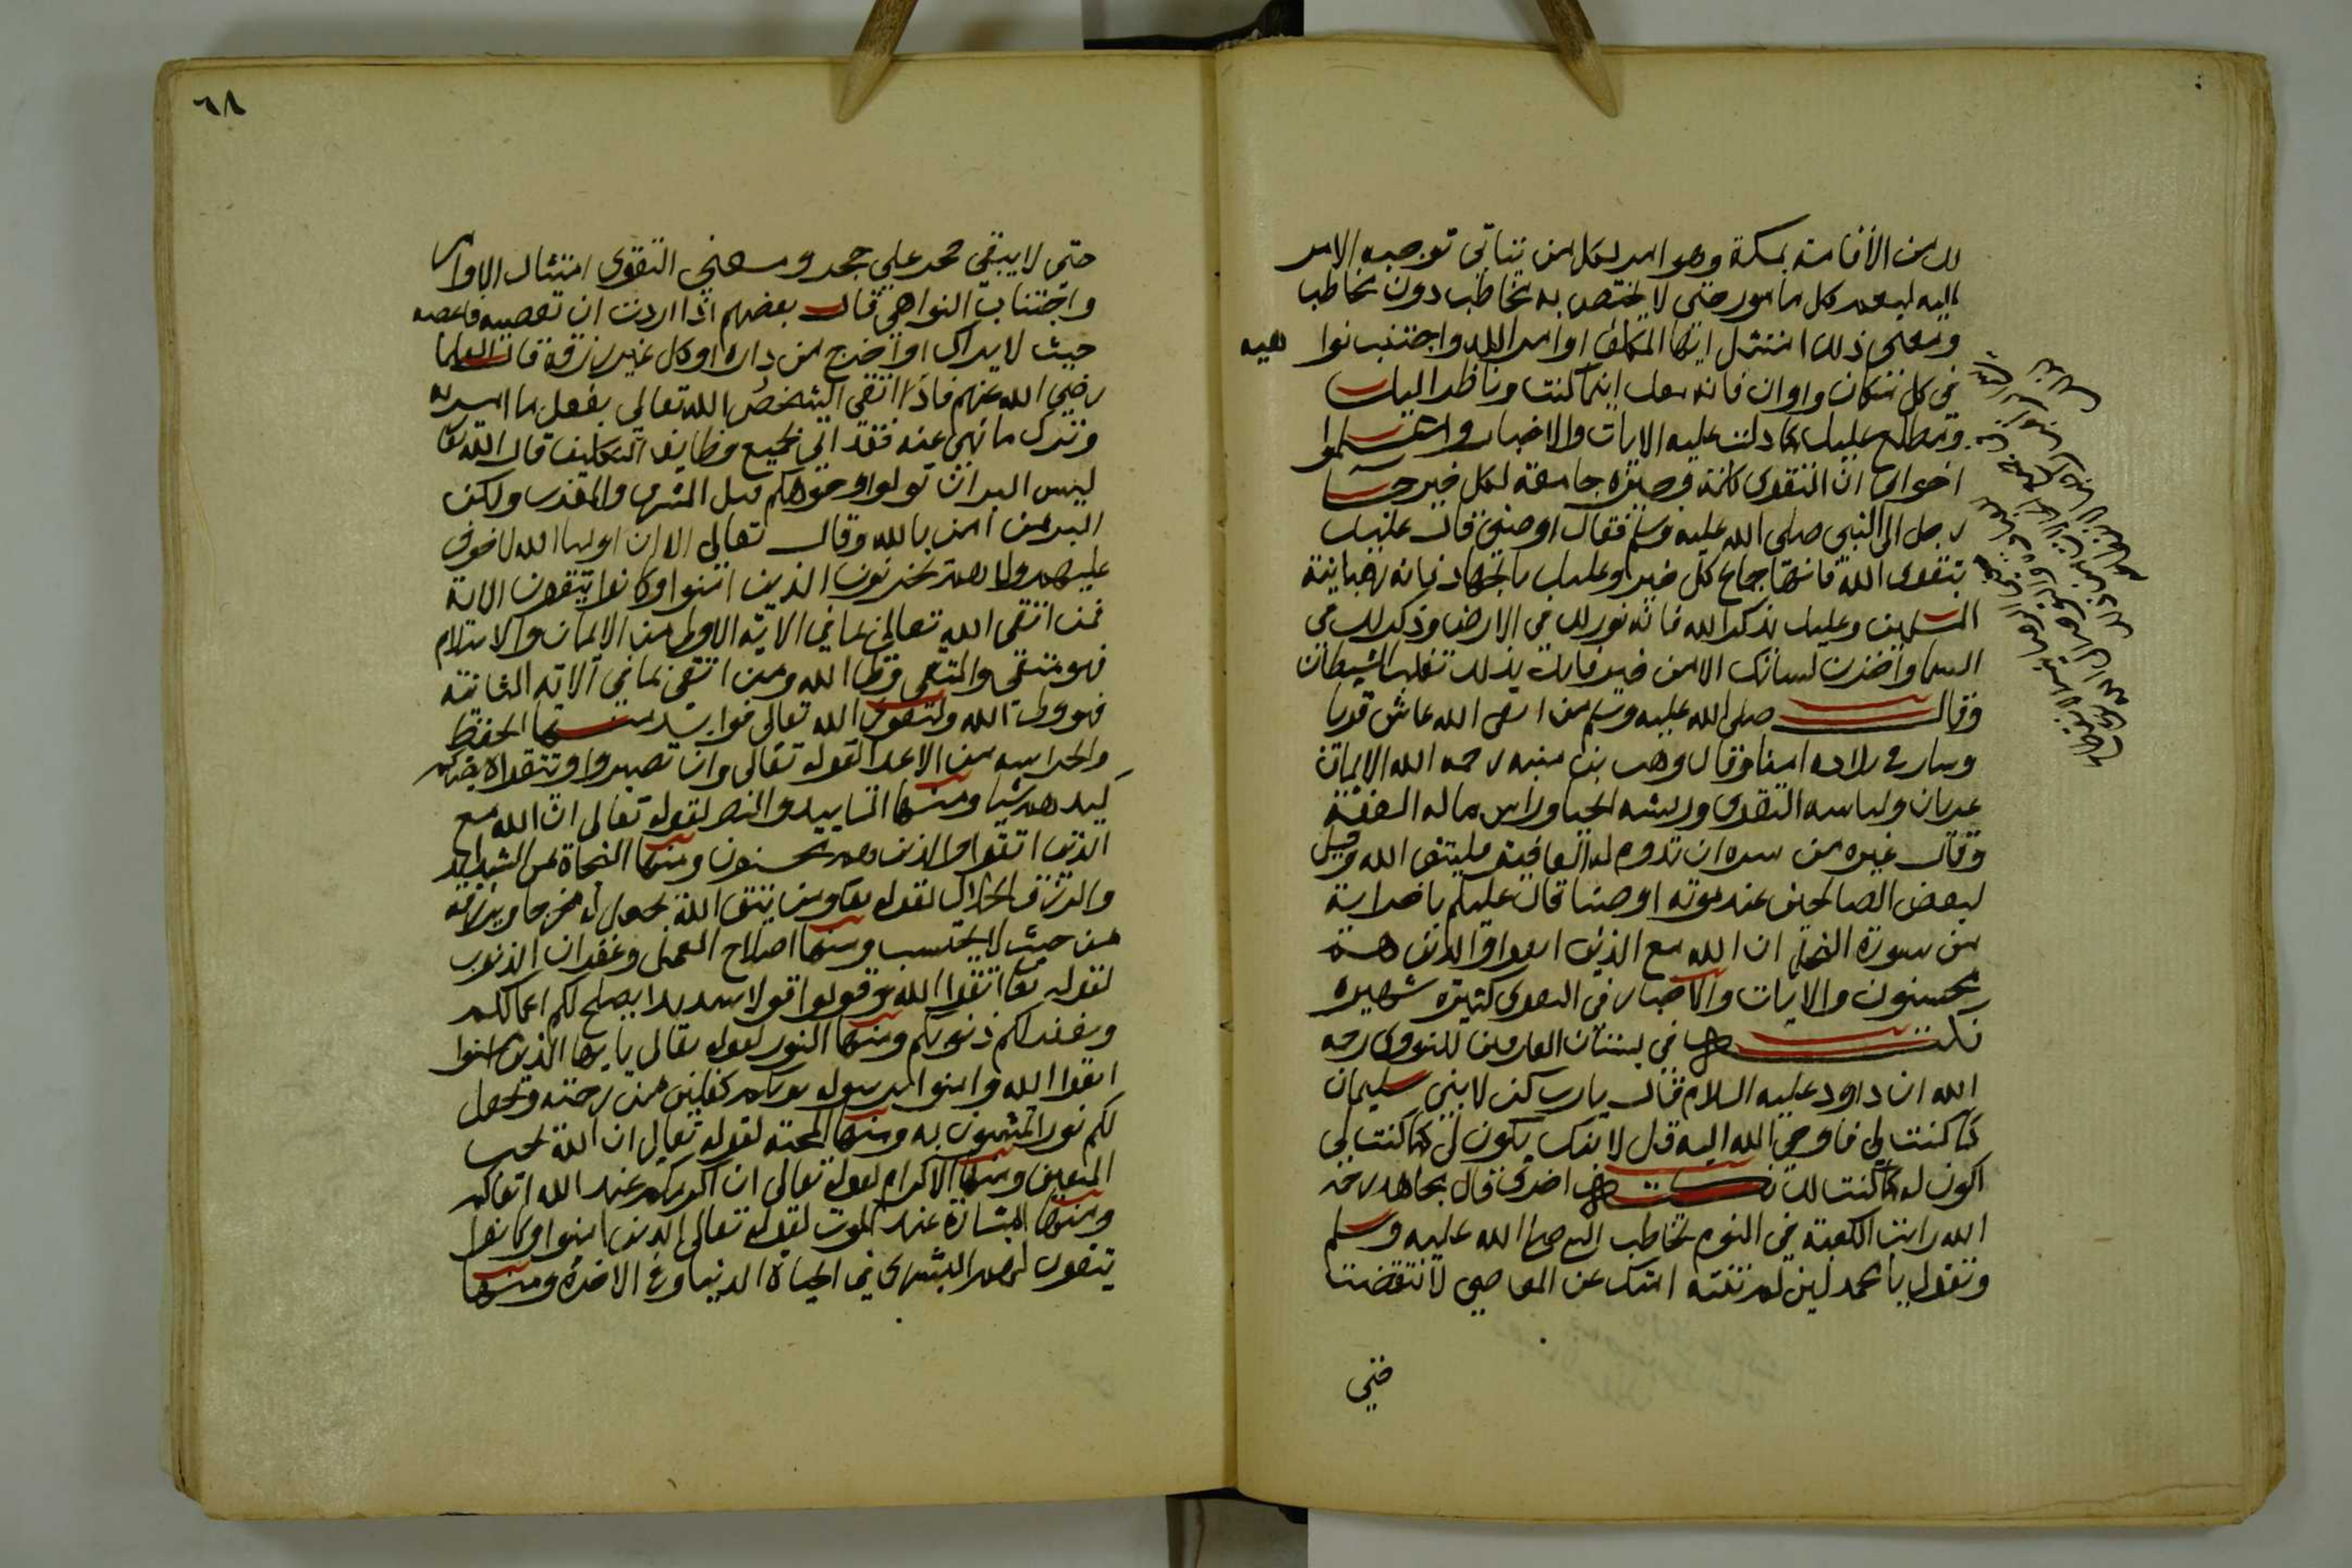 لك من الأقامة بمكة وهو امر لكل من يتأتى توجيه الامر
اليه ليعم كل مامور حتى لا يختص به مخاطب دون مخاطب
ومعنى ذلك امتثل ايها المكلف اوامر الله واجتنب نوا هيه
في كل مكان واوان فانه معك اينما كنت وناظر اليك
ومطلع عليك كما دلت عليه الايات والاخبار واعلموا
اخواني ان التقوى كلمة وجيزة جامعة لكل خير جا
رجل الى النبي صلى الله عليه وسلم فقال اوصني قال عليك
بتقوى الله فانها جماع كل خير وعليك بالجهاد فانه رهبانية
المسلمين وعليك بذكر الله فانه نور لك في الارض وذكر لك في
السما واخزن لسانك الا من خير فانك بذلك تغلب الشيطان
وقال صلى الله عليه وسلم من اتقى الله عاش قويا
وسار في بلاده امنا وقال وهب بن منبه رحمه الله الايمان
عريان ولباسه التقوى وريشه الحيا وراس ماله العفة
وقال غيره من سره ان تدوم له العافية فليتق الله وقيل
لبعض الصالحين عند موته اوصنا قال عليكم باخر اية
من سورة النحل ان الله مع الذين اتقوا والذين هم
محسنون والايات والاخبار في التقوى كثيرة شهيرة
نكتة في بستان العارفين للنووي رحمه
الله ان داود عليه السلام قال يارب كن لابني سليمان
كما كنت لي فاوحى الله اليه قل لابنك يكون لي كما كنت لي
اكون له كما كنت لك نكتة اخرى قال مجاهد رحمه
الله رايت الكعبة في النوم تخاطب النبي صلى الله عليه وسلم
وتقول يا محمد لين لم تنته امتك عن المعاصي لانتقضت
حتى
٦٨
حتى لا يبقى حجر علي حجر ومعنى التقوى امتثال الاوامر
واجتناب النواهي قال بعضهم اذا اردت ان تعصيه فاعصه
حيث لا يراك او اخرج من داره او كل غير رزقه قال العلما
رضي الله عنهم فاذا اتقى الشخص الله تعالى بفعل ما امر به
وترك ما نهى عنه فقد اتي بجميع وظايف التكليف قال الله تعا
ليس البر ان تولوا وجوهكم قبل المشرق والمغرب ولكن
البر من امن بالله وقال تعالى الا ان اوليا الله لا خوف
عليهم ولا هم يحزنون الذين امنوا وكانوا يتقون الاية
فمن اتقى الله تعالى بما في الاية الاولى من الايمان والاسلام
فهو متقي والمتقي ولي الله ومن اتقى بما في الاية الثانية
فهو ولي الله ولتقوى الله تعالى فوايد منها الحفظ
والحراسه من الاعدا لقوله تعالى وان تصبروا وتتقوا لا يضركم
كيدهم شيا ومنها التاييد والنصر لقوله تعالى ان الله مع
الذين اتقوا والذين هم محسنون ومنها النجاة من الشدايد
والرزق الحلال لقوله تعا ومن يتق الله يجعل له مخرجا ويرزقه
من حيث لا يحتسب ومنها اصلاح العمل وغفران الذنوب
لقوله تعا اتقوا الله وقولوا قولا سديدا يصلح لكم اعمالكم
ويغفر لكم ذنوبكم ومنها النور لقوله تعالى يا يها الذين امنوا
اتقوا الله وامنوا برسوله يوتكم كفلين من رحمته ويجعل
لكم نورا تمشون به ومنها المحبة لقوله تعالى ان الله يحب
المتقين ومنها الاكرام لقوله تعالى ان اكرمكم عند الله اتقاكم
ومنها البشارة عند الموت لقوله تعالى الذين امنوا وكانوا
يتقون لهم البشرى في الحياة الدنيا وفي الاخرة ومنها